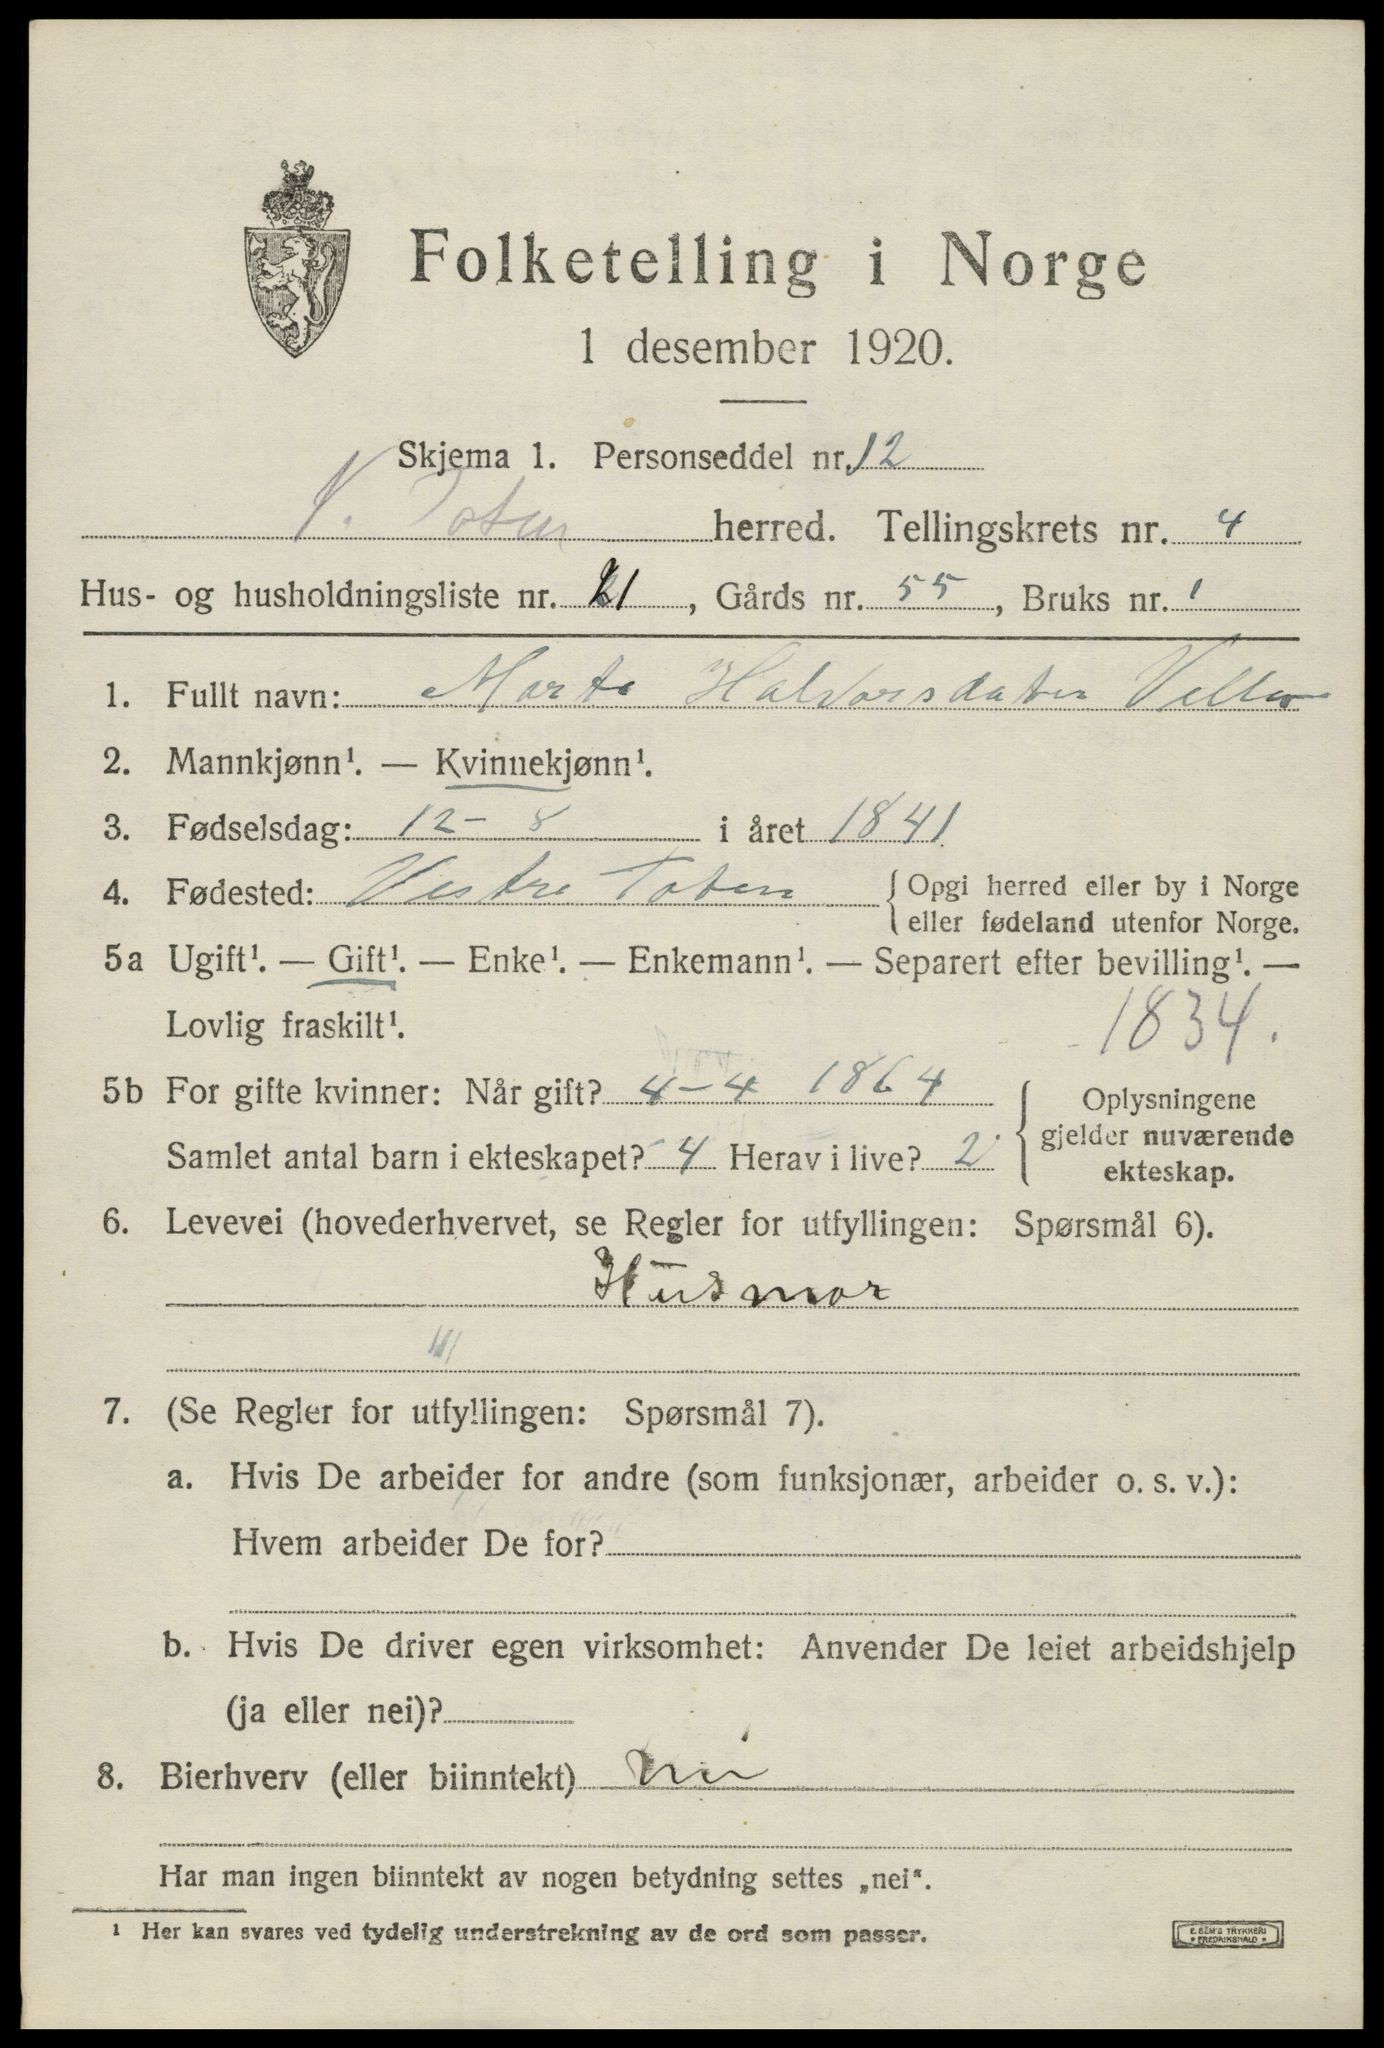 Folketelling i Norge
1 desember 1920.
Skjema 1. Personseddel nr. 12
V. Toten herred. Tellingskrets nr. 4
Hus- og husholdningsliste nr. 21, Gårds nr. 55, Bruks nr. 1
1. Fullt navn: Marte Halvorsdater
2. Mannkjønn¹. — Kvinnekjønn¹.
3. Fødselsdag: 12-8 i året 1841
4. Fødested: Vestre Toten { Opgi herred eller by i Norge
eller fødeland utenfor Norge.
5a Ugift¹. — Gift¹. — Enke¹. — Enkemann¹. — Separert efter bevilling¹. —
Lovlig fraskilt¹.
1834.
5b For gifte kvinner: Når gift? 4-4 1864
Samlet antal barn i ekteskapet? 4 Herav i live? 2
{ Oplysningene
gjelder nuværende
ekteskap.
6. Levevei (hovederhvervet, se Regler for utfyllingen: Spørsmål 6).
Husmor
7. (Se Regler for utfyllingen: Spørsmål 7).
a. Hvis De arbeider for andre (som funksjonær, arbeider o. s. v.):
Hvem arbeider De for?
b. Hvis De driver egen virksomhet: Anvender De leiet arbeidshjelp
(ja eller nei)?
8. Bierhverv (eller biinntekt) nei
Har man ingen biinntekt av nogen betydning settes „nei“.
¹ Her kan svares ved tydelig understrekning av de ord som passer.
E. SEM'S TRYKKERI
FREDRIKSHALD